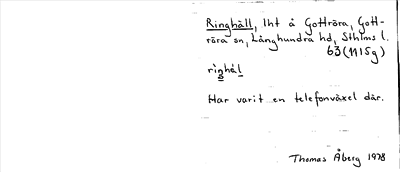 Ringhäll, lht å Gottröra, Gott-
röra sn, Långhundra hd, Sthlms l.
63 (1115g)
rinhäl
Har varit en telefonväxel där.
Thomas Åberg 1978